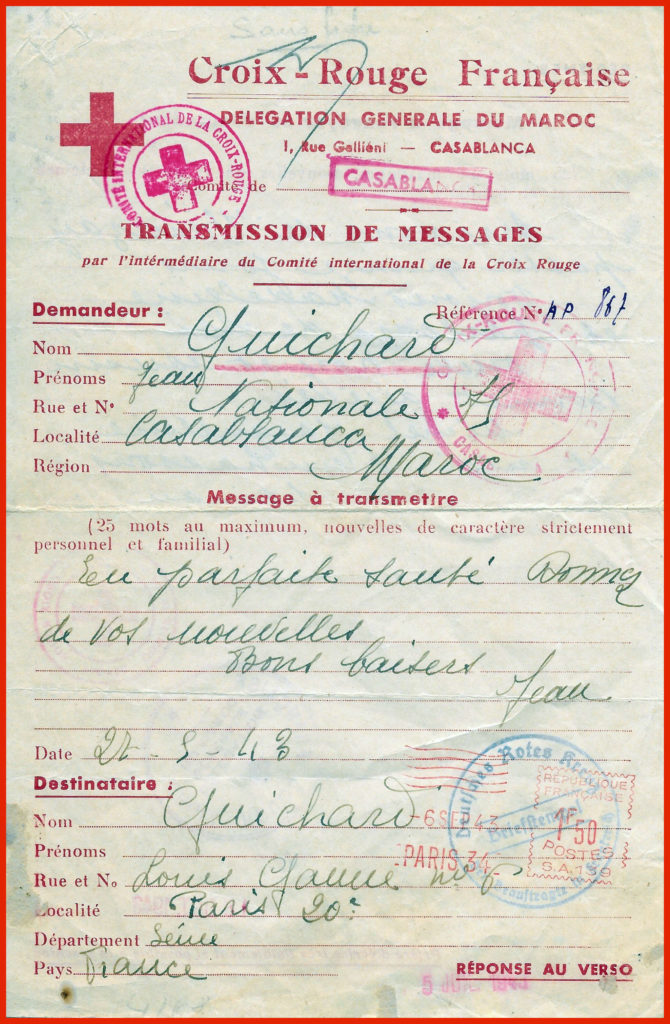 Croix-Rouge Française
DELEGATION GENERALE DU MAROC
1, Rue Galliéni — CASABLANCA
COMITÉ INTERNATIONAL DE LA CROIX-ROUGE
Comité de
CASABLANCA
TRANSMISSION DE MESSAGES
par l'intérmédiaire du Comité international de la Croix Rouge
Demandeur :
Référence N° AP 867
Nom Guichard
Prénoms Jean
Rue et N° Nationale 75
Localité Casablanca
Région Maroc
Message à transmettre
(25 mots au maximum, nouvelles de caractère strictement
personnel et familial)
En parfaite santé Donnez
de vos nouvelles
Bons baisers
Jean
Date 27-5-43
Destinataire :
Nom Guichard
Deutsches Rotes
Briefstempel
REPUBLIQUE
FRANÇAISE
1F50
POSTES
-6 SE 43
PARIS 34
Prénoms
Rue et No Louis Ganne
Localité Paris 20e
Département Seine
Pays France
RÉPONSE AU VERSO